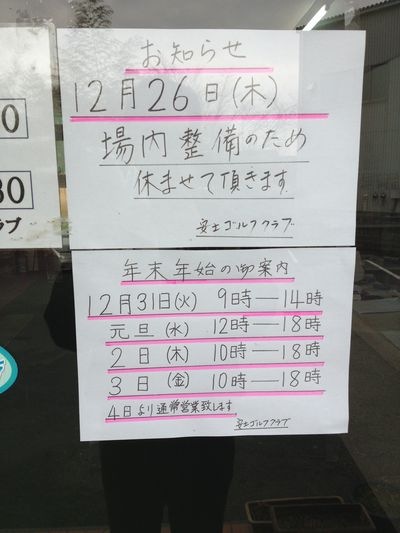 0
30
ラブ
お知らせ
12月26日(木)
場内整備のため
休ませて頂きます
安土ゴルフクラブ
年末年始の御案内
12月31日(火) 9時―14時
元旦(水) 12時―18時
2日(木) 10時―18時
3日(金) 10時―18時
4日より通常営業致します
安土ゴルフクラブ